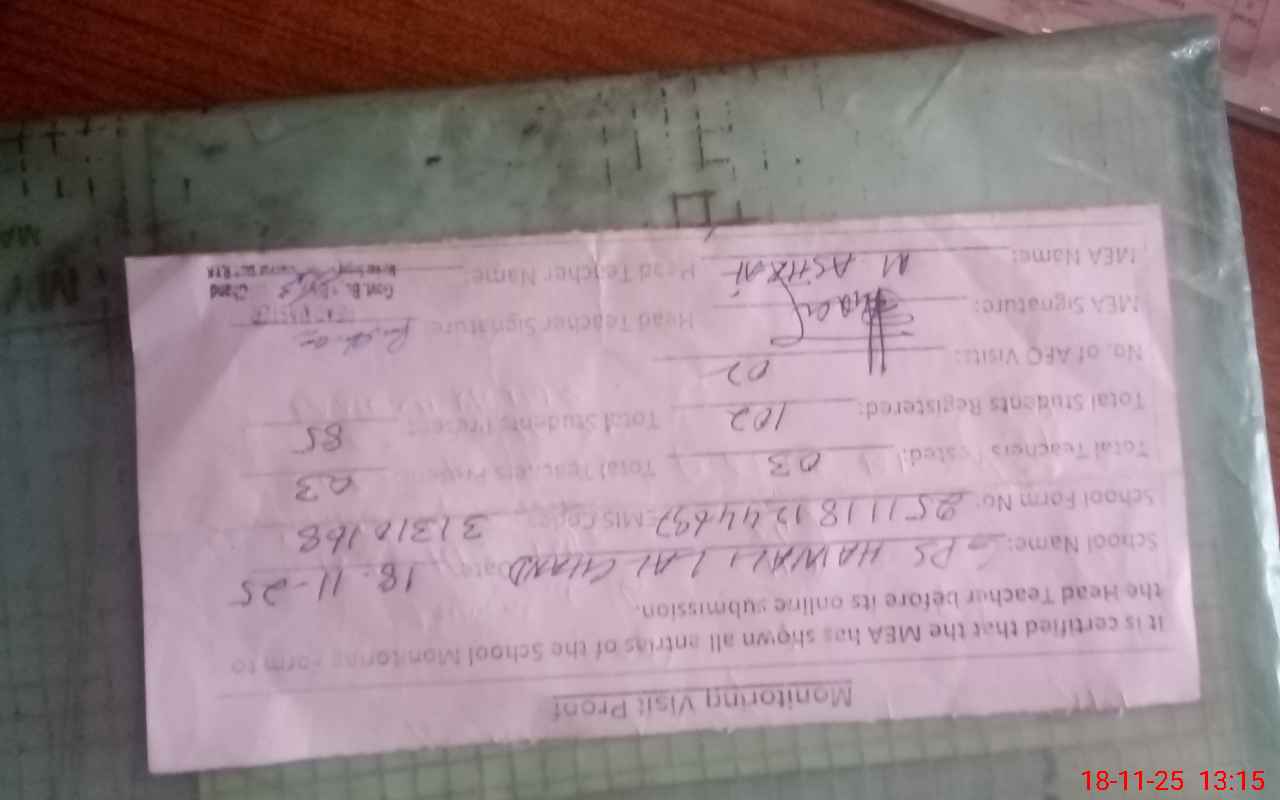 Monitoring Visit Proof
It is certified that the MEA has shown all entries of the School Monitoring Form to
the Head Teacher before its online submission.
School Name: GPS HAWALI LAL CHAND Date: 18-11-25
School Form No: EMIS Code: 31310168
Total Teachers Posted: 03 Total Teachers Present: 03
Total Students Registered: 102 Total Students Present: 85
No. of AFO Visits: 02
MEA Signature: Head Teacher Signature:
MEA Name: M ASHRAF Head Teacher Name:
18-11-25 13:15